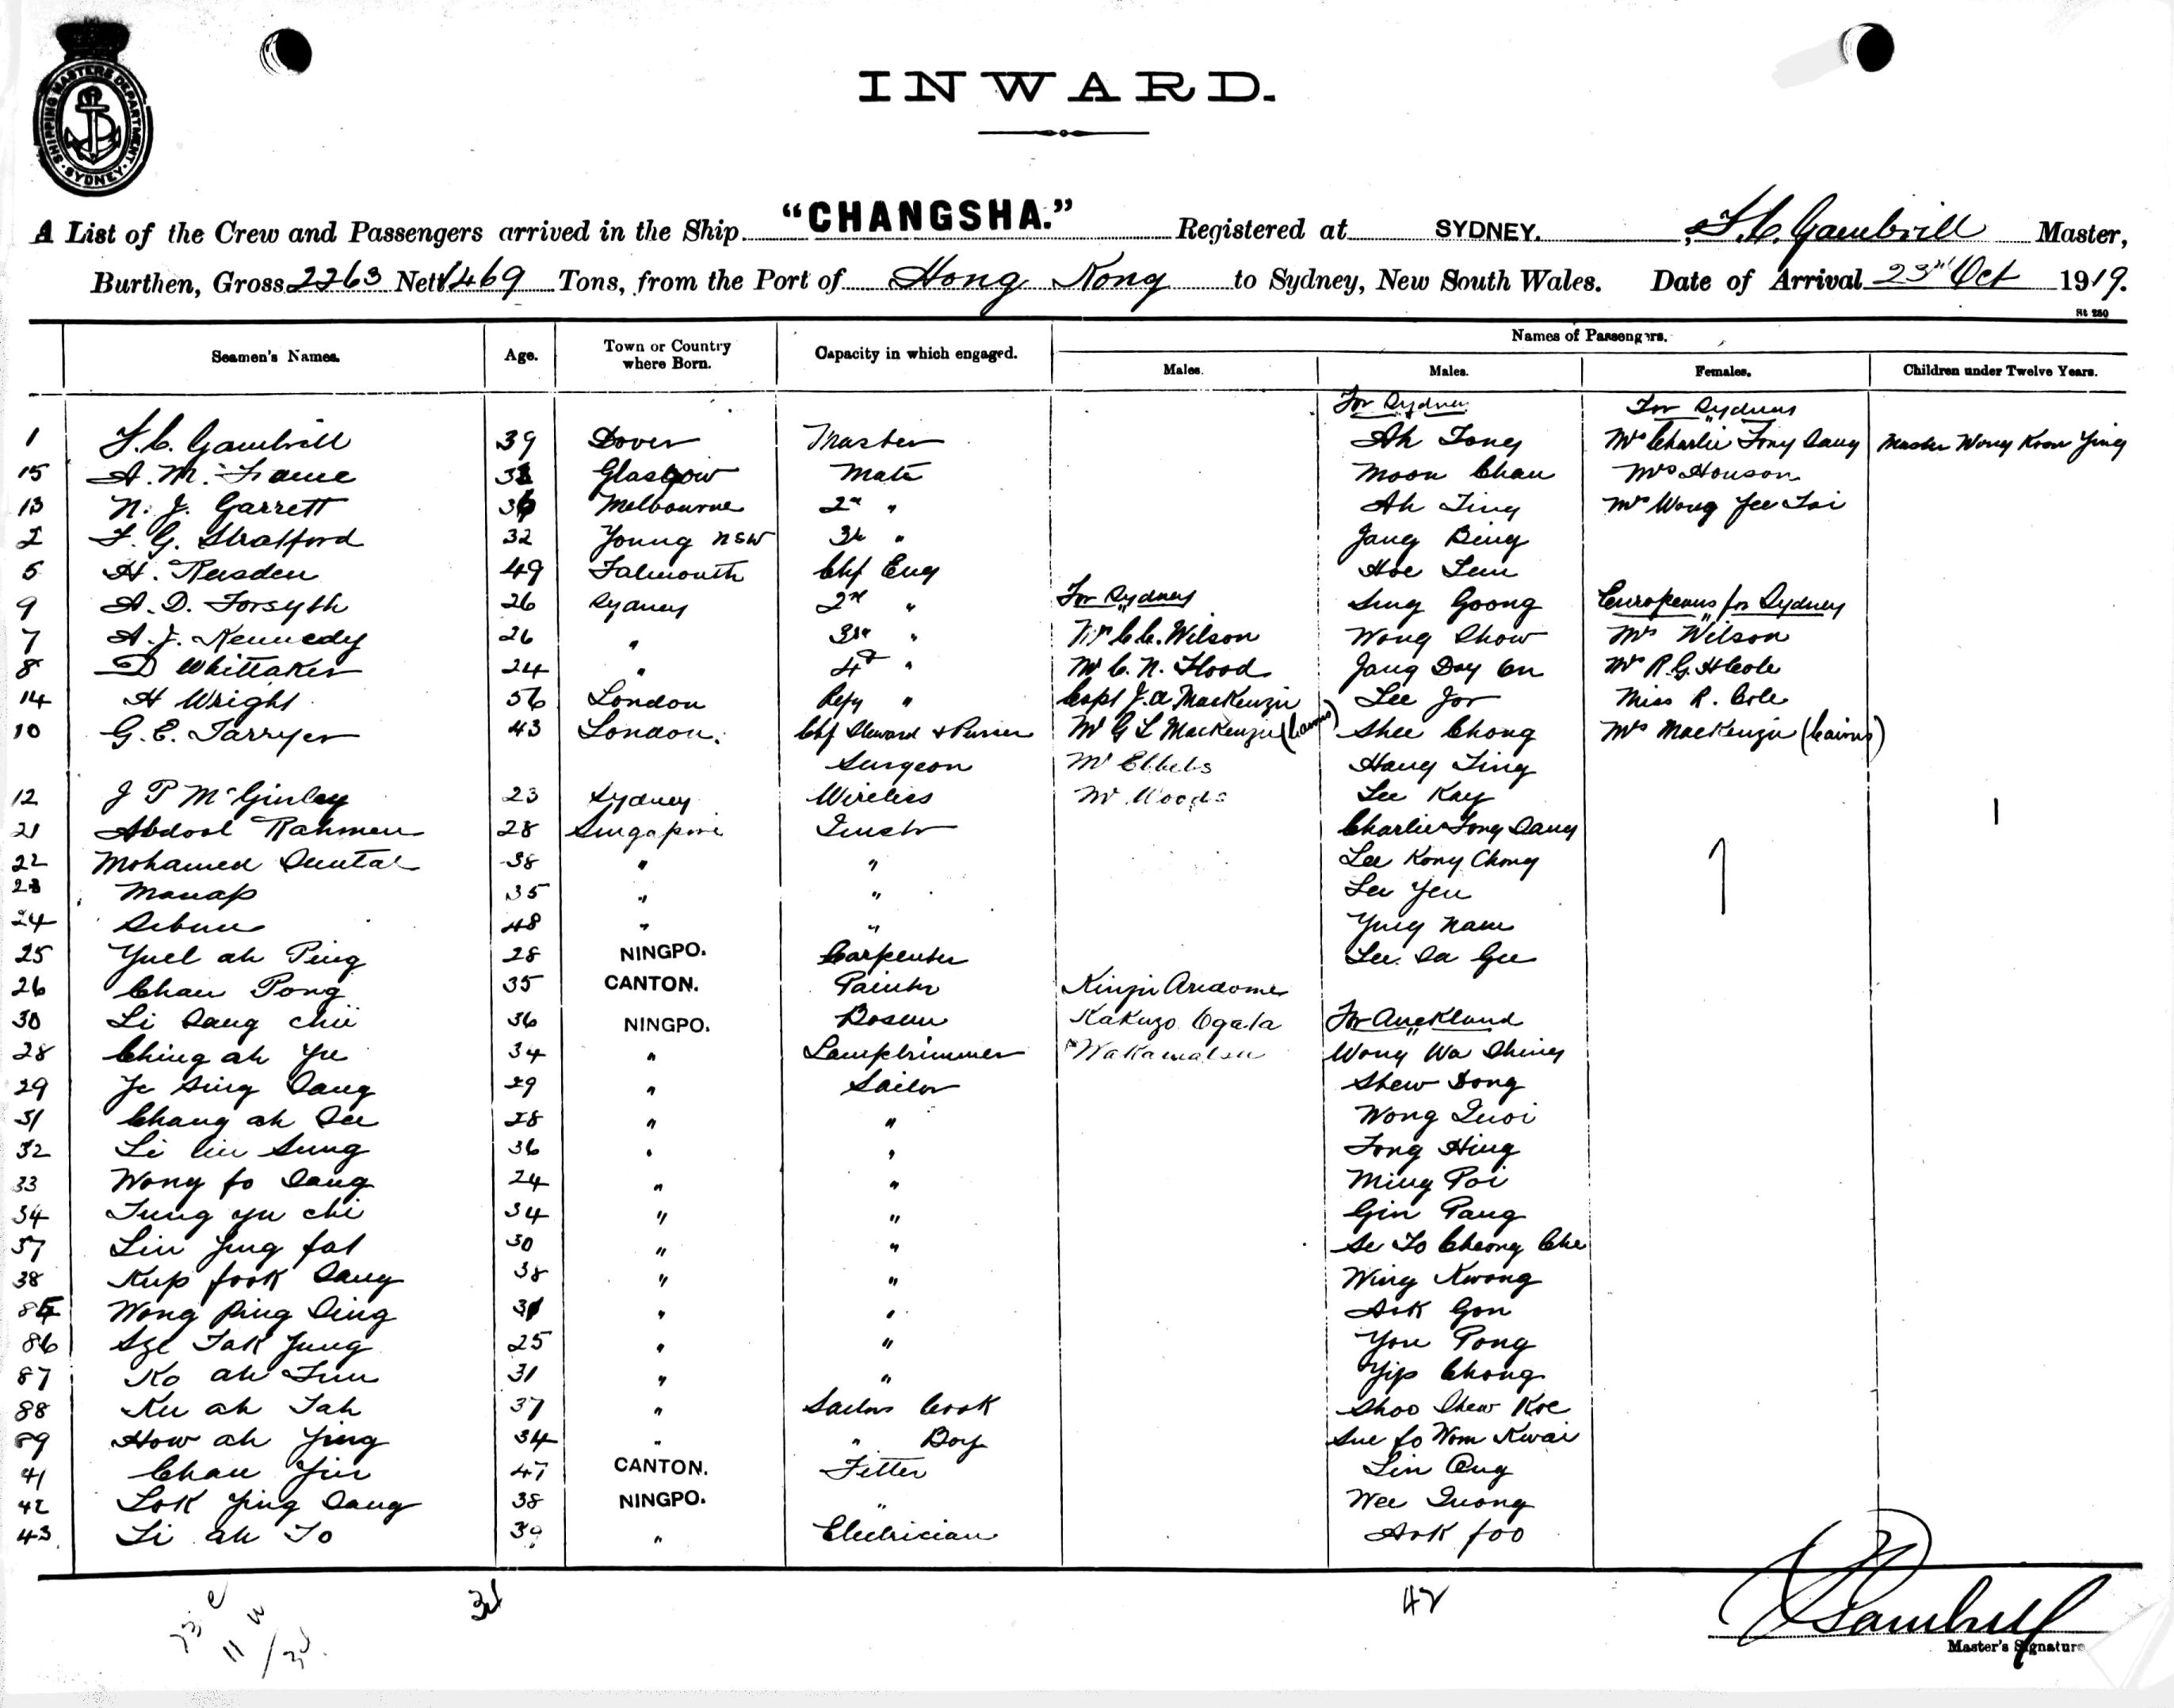 SHIPPING MASTERS DEPARTMENT · SYDNEY ·
INWARD.
A List of the Crew and Passengers arrived in the Ship "CHANGSHA." Registered at SYDNEY. F. C. Gambrill Master,
Burthen, Gross 2263 Nett 1469 Tons, from the Port of Hong Kong to Sydney, New South Wales. Date of Arrival 23rd Oct 1919.
St 280
Names of Passengers.
Seamen's Names. Age. Town or Country where Born. Capacity in which engaged. Males. Males. Females. Children under Twelve Years.
For Sydney For Sydney
1 F. C. Gambrill 39 Dover Master Ah Tong Mrs Charlie Fong Sang Master Wong Koon Ying
15 A. M. Frame Glasgow Mate Moon Chau Mrs Houson
13 N. J. Garrett 36 Melbourne 2nd " Ah Ting Mrs Wong Yee Toi
2 F. G. Stratford 32 Young NSW 3rd " Jang Bing
5 H. Rusden 49 Falmouth Chf Eng Hoe Lum
9 A. D. Forsyth 26 Sydney 2nd " For Sydney Sing Goong Europeans for Sydney
7 A. J. Kennedy 26 " 3rd " Mr C. C. Wilson Wong Show Mrs Wilson
8 D Whittaker 24 " 4th " Mr C. N. Flood Jang Day On Mrs R. G. H Cole
14 H Wright 56 London Refg " Capt J. A MacKenzie Lee Jor Miss R. Cole
10 G. E. Tarryer 43 London. Chf Steward & Purser Mr G L MacKenzie (Cairns) Shee Chong Mrs MacKenzie (Cairns)
Surgeon Mr Ebbels Hang Ting
12 J P McGinley 23 Sydney Wireless Mr Woods Lee Kay
21 Abdool Rahman 28 Singapore Charlie Fong Sang
22 Mohamed 38 " " Lee Kong Chong
23 Manap 35 " " Lee Yen
24 48 " " Ying Nam
25 Yuel ah Ping 28 NINGPO. Carpenter Lee Sa Gee
26 Chau Pong 35 CANTON. Painter Kinji
30 Li Sang chü 36 NINGPO. Bosun Kakuzo Ogata For Auckland
28 Ching ah Yu 34 " Lamptrimmer Wakamatsu Wong Wa Shing
29 Je Sing Sang 29 " Sailor Shew Dong
31 Chang ah See 28 " " Wong Quoi
32 Li liu Sung 36 " " Fong Hing
33 Wong fo Sang 24 " " Ming Poi
34 Tung yu chi 34 " " Gin Pang
37 Liu Jung fat 30 " " Se To Cheong Che
38 Kup fook Sang 38 " " Wing Kwong
Wong Ping Sing 31 " " Ask Gon
86 Sze Tak Jung 25 " " You Pong
87 Ko ah Fun 31 " " Yip Chong
88 Ku ah Tah 37 " Sailors Cook Shoo Shew Koe
89 How ah Ying 34 " " Boy Sue fo Wom Kwai
41 Chau Jin 47 CANTON. Fitter Lin Ong
42 Lok Ying Sang 38 NINGPO. " Wee Quong
43. Li ah To 39 " Electrician Ark foo
42
Gambrill
Master's Signature